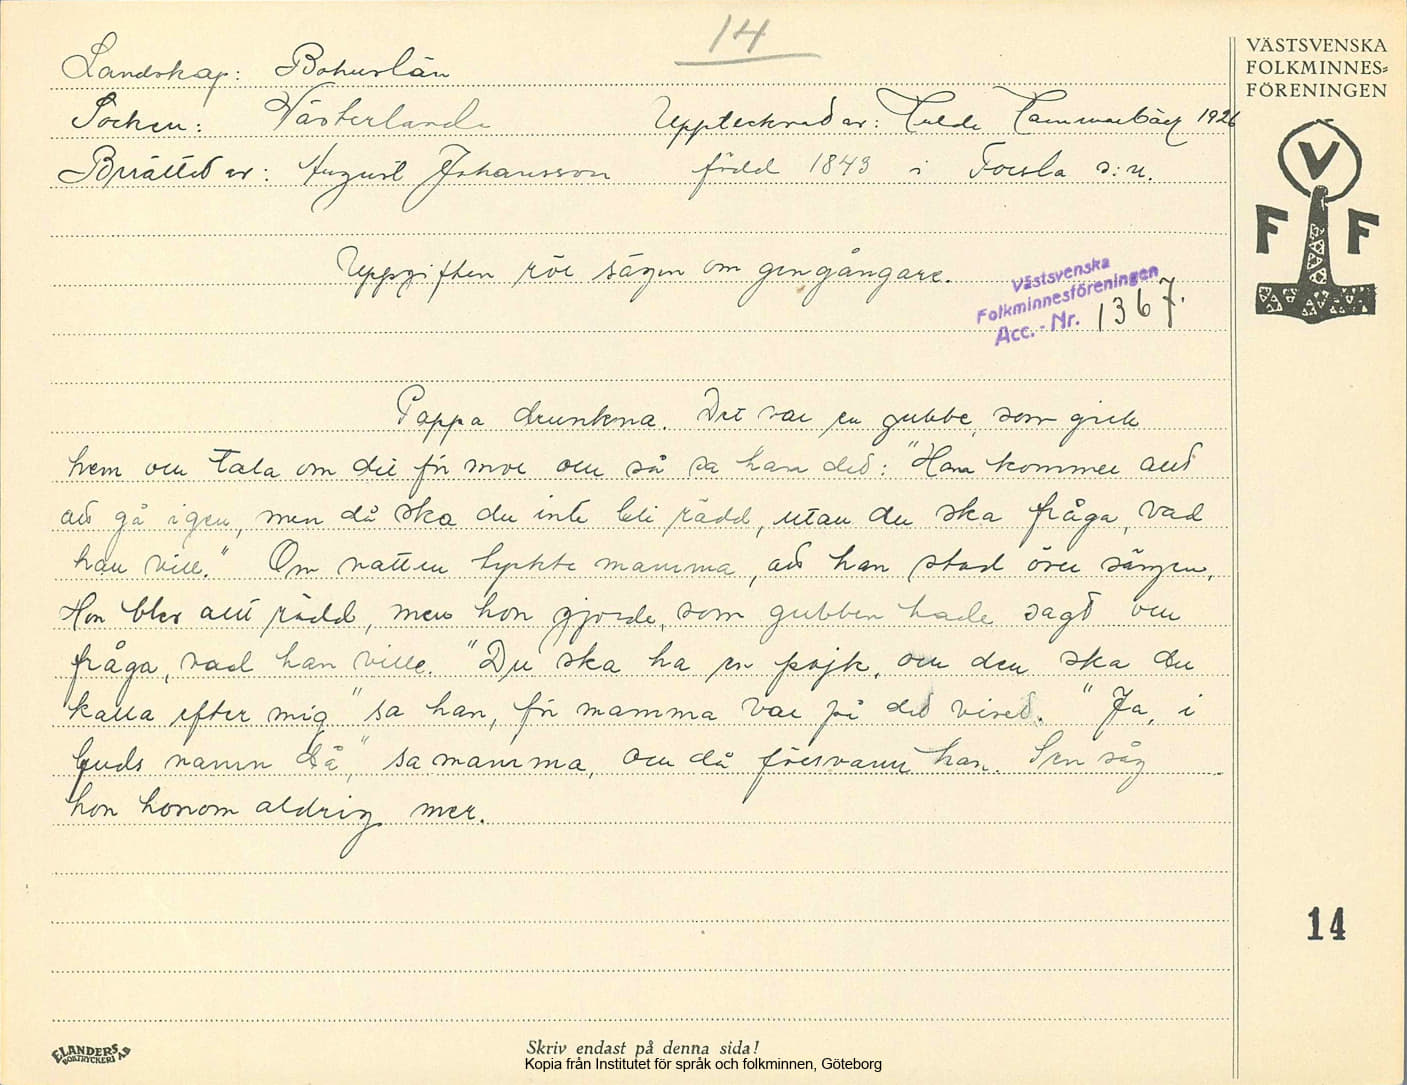 14
VÄSTSVENSKA
FOLKMINNES=
FÖRENINGEN
Landskap: Bohuslän
Socken: Västerlanda Upptecknad av: Hulda Hammarbäck 1926
Berättad av: August Johansson född 1843 i Forsla s:n.
Uppgiften rör sägen om gengångare.
Västsvenska
Folkminnesföreningen
Acc. - Nr. 1367.
V
F F
Pappa drunkna. Det var en gubbe, som gick
hem och tala om det för mor och så sa han det: "Han kommer allt
att gå igen, men då ska du inte bli rädd, utan du ska fråga, vad
han vill." Om natten tyckte mamma, att han stod över sängen.
Hon blev allt rädd, men hon gjorde, som gubben hade sagt och
fråga, vad han ville. "Du ska ha en pojk, och den ska du
kalla efter mig" sa han, för mamma var på det viset. "Ja, i
Guds namn då," sa mamma, och då försvann han. Sen såg
hon honom aldrig mer.
14
ELANDERS
BOKTRYCKERI AB
Skriv endast på denna sida!
Kopia från Institutet för språk och folkminnen, Göteborg